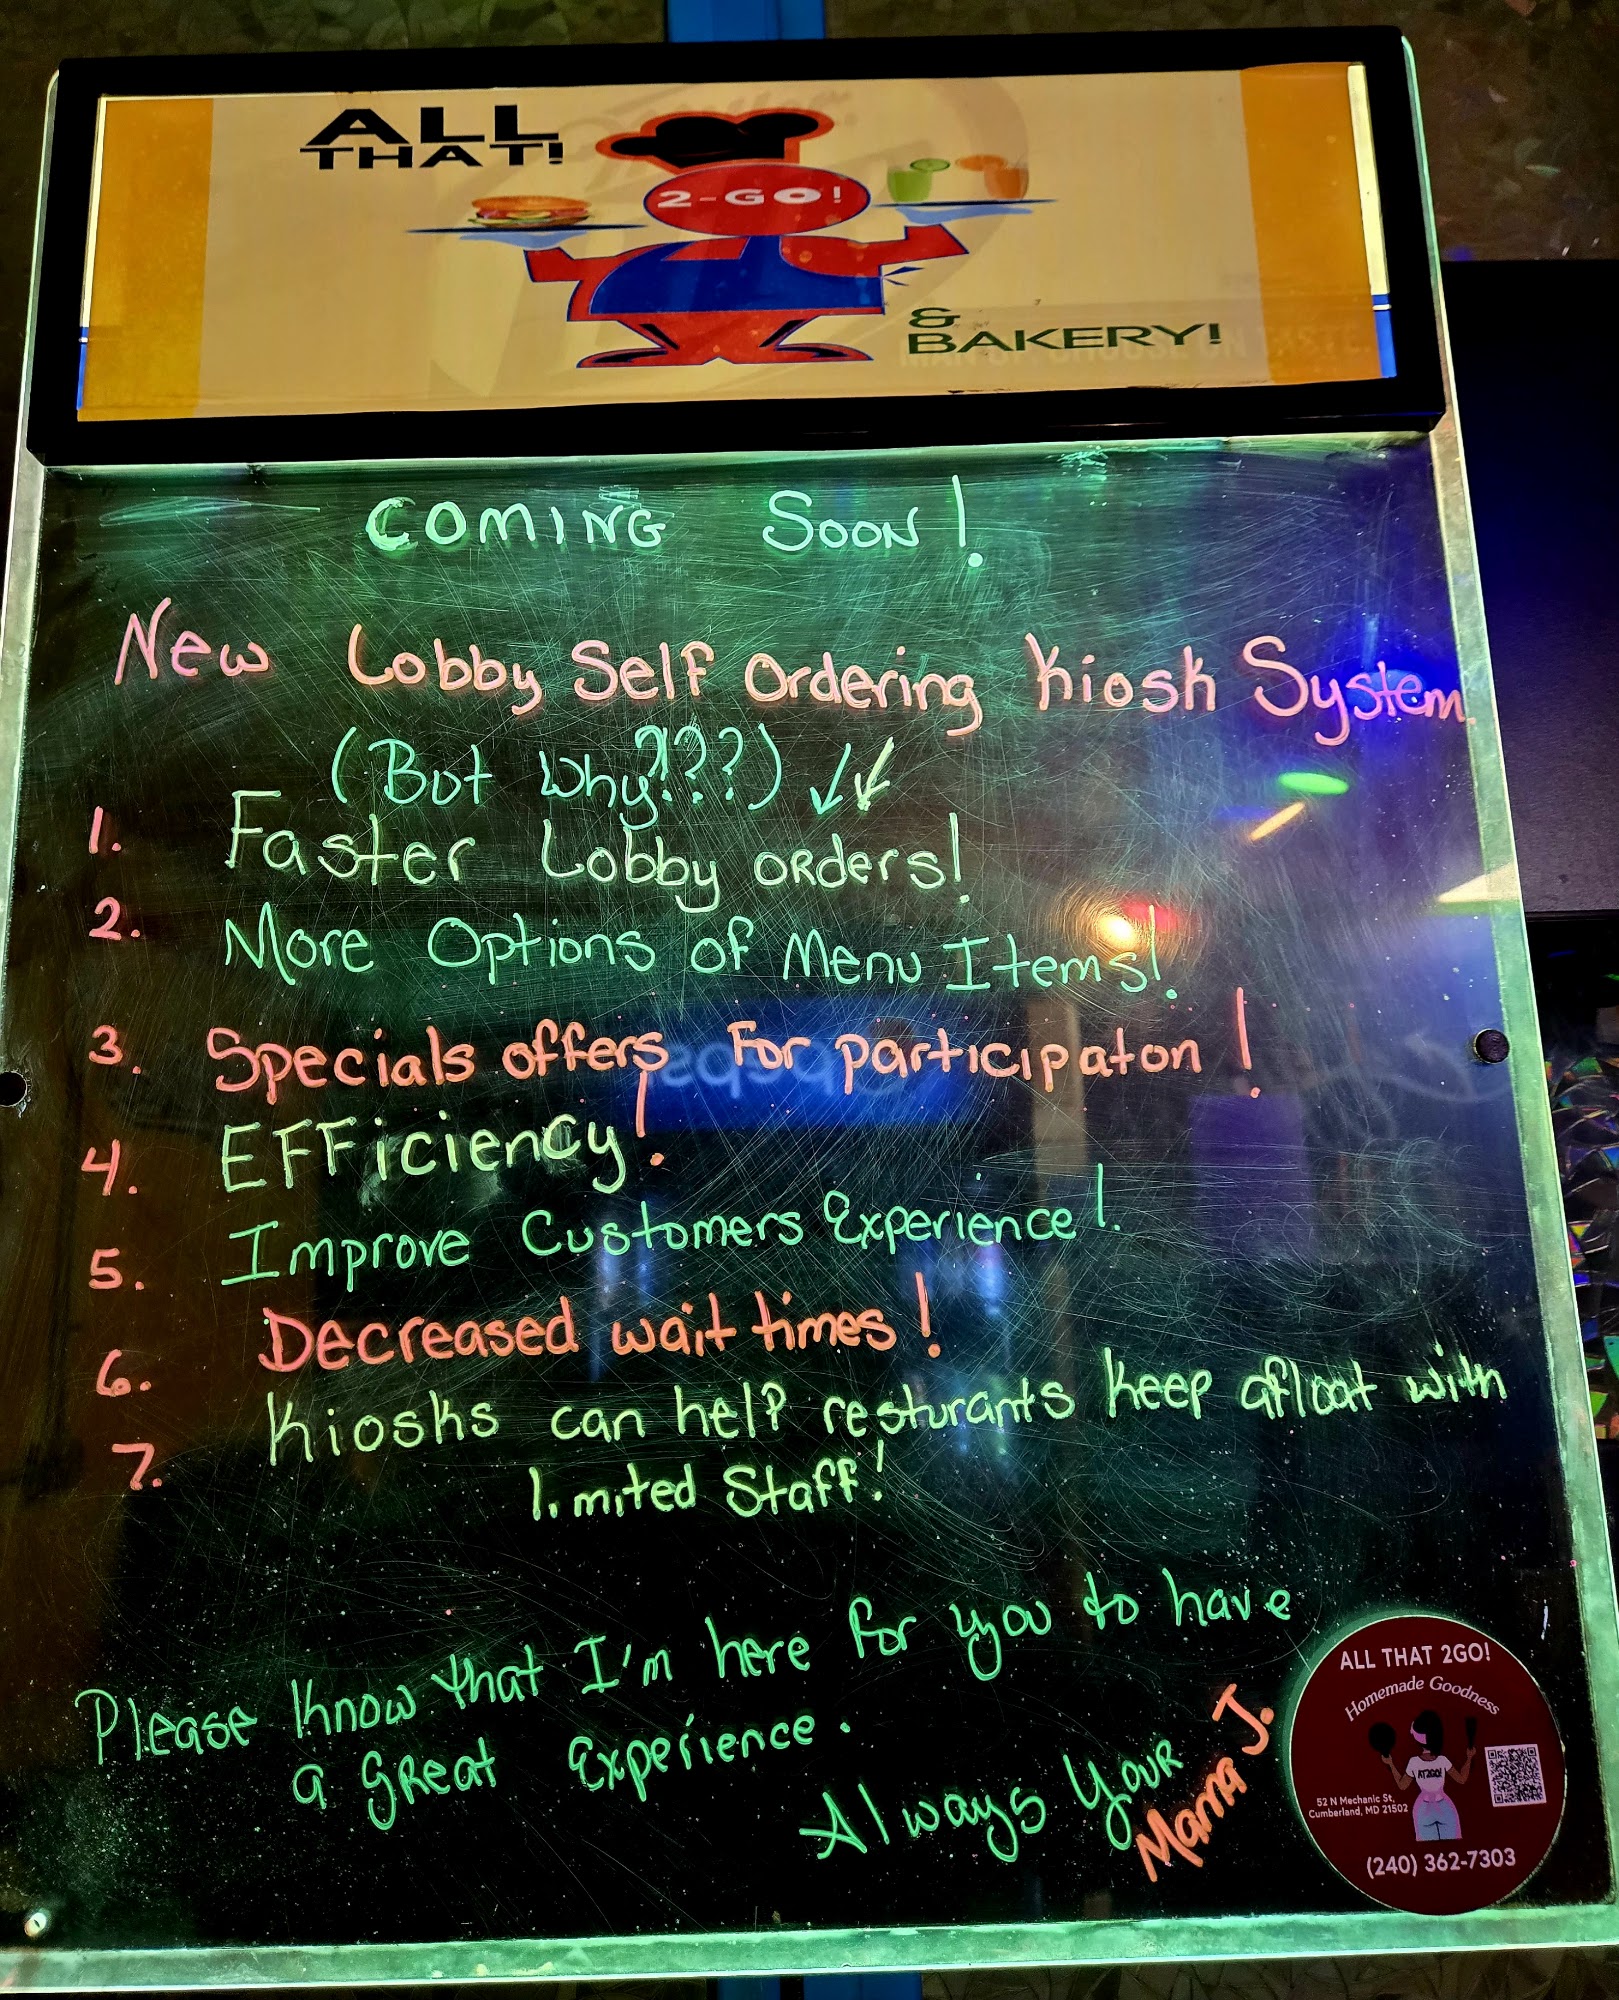 ALL
THAT!
2-GO!
&
BAKERY!
COMING SOON!
New Lobby Self Ordering Kiosk System
(But Why????) ↓↓
1. Faster Lobby orders!
2. More Options of Menu Items!
3. Specials offers For participaton!
4. EFFiciency!
5. Improve Customers Experience!
6. Decreased wait times!
7. Kiosks can help resturants keep afloat with
limited Staff!
Please know that I'm here for you to have
a great Experience.
Always Your
Mama J.
ALL THAT 2GO!
Homemade Goodness
AT2GO!
52 N Mechanic St,
Cumberland, MD 21502
(240) 362-7303